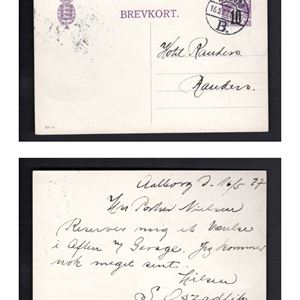 BREVKORT.
10
B.
Hotel Randers.
Randers.
Aalborg d. 16/5 27
Hr Portier Nielsen
Reserver mig et Værelse
i Aften og Garage. Jeg kommer
nok meget sent.
Hilsen